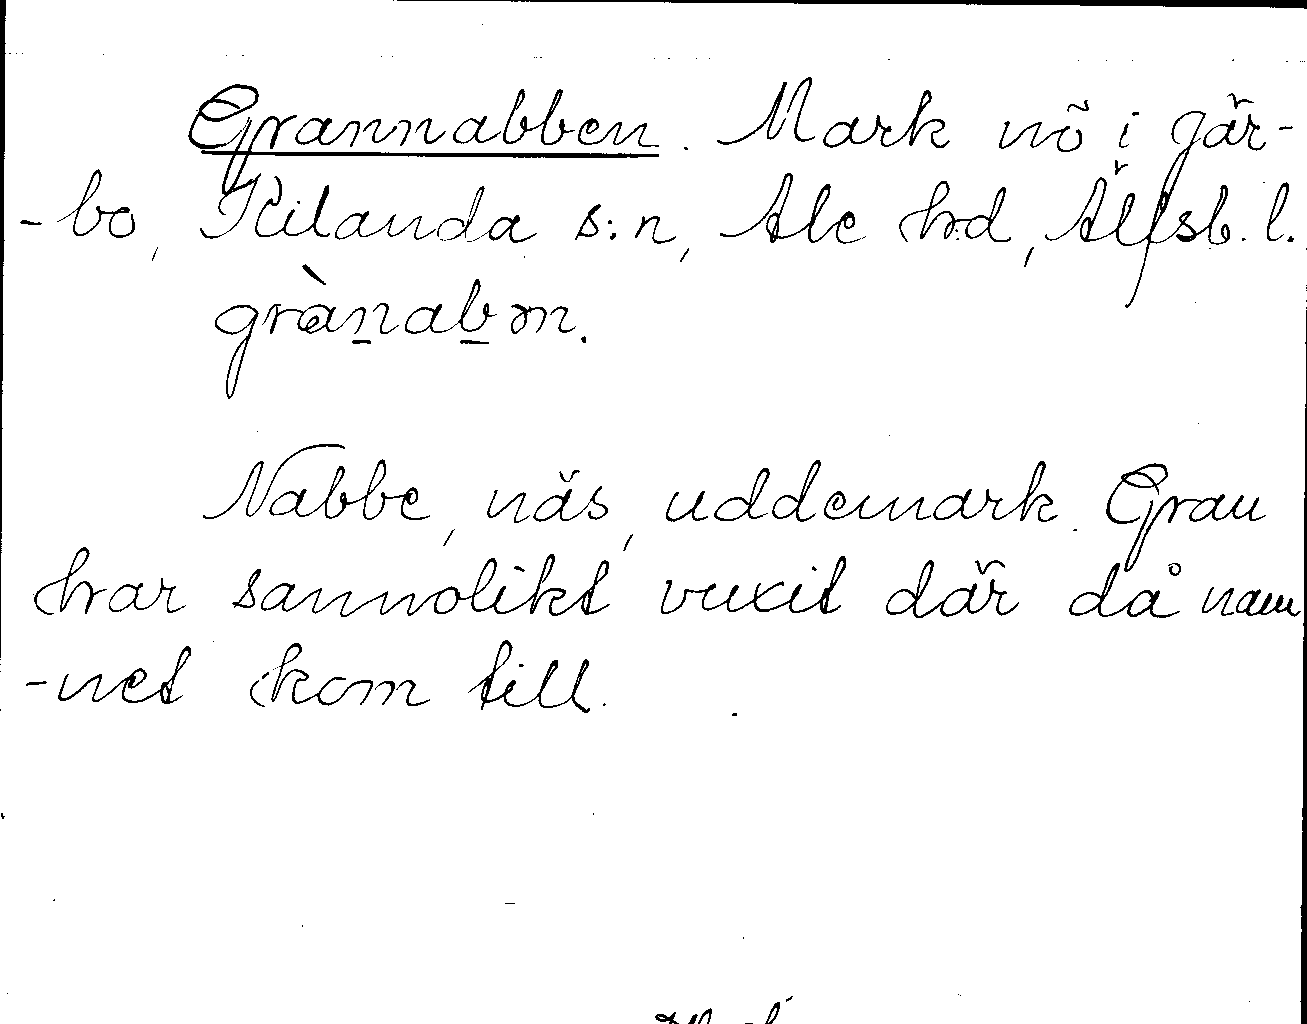 Grannabben. Mark nö i Går-
-bo, Kilanda s:n, Ale hd, Älfsb. l.
grànabm.
Nabbe, näs, uddemark. Gran
har sannolikt vuxit där då nam
-net kom till.